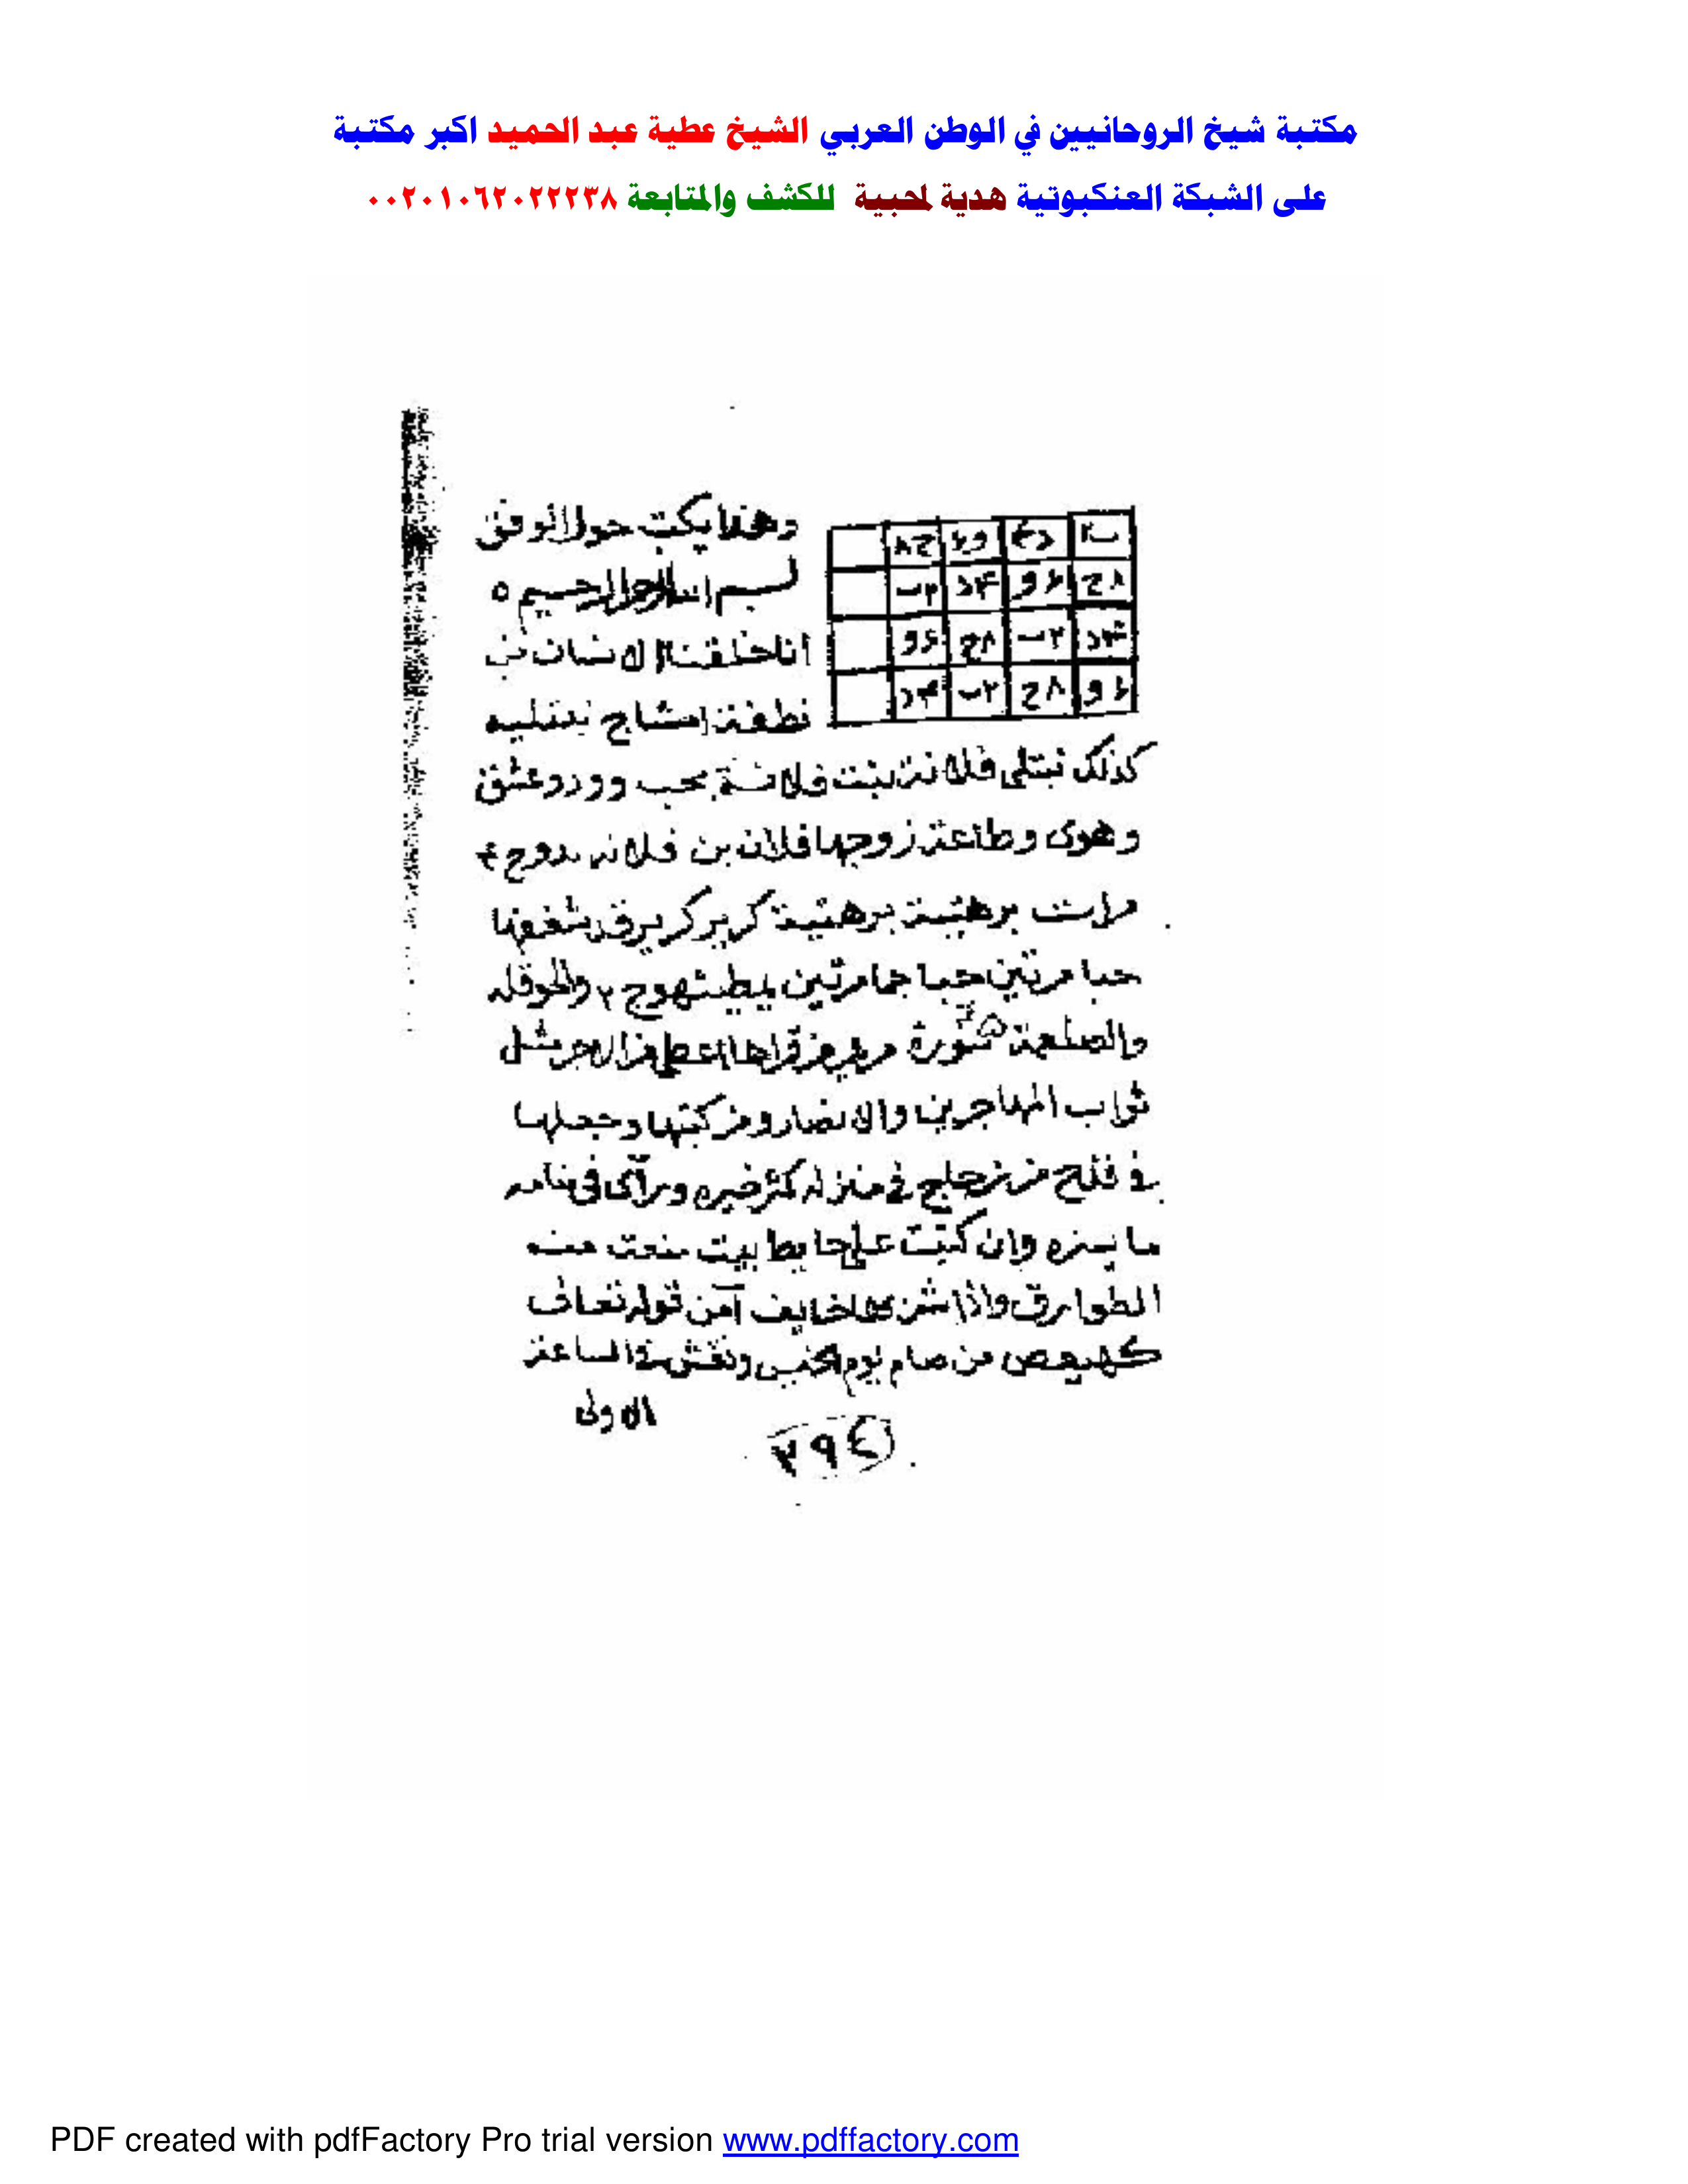 مكتبة شيخ الروحانيين في الوطن العربي الشيخ عطية عبد الحميد اكبر مكتبة
على الشبكة العنكبوتية هدية لمحبية للكشف والمتابعة ٠٠٢٠١٠٦٢٠٢٢٢٣٨
وهذا يكتب حول الوفق
بسم الله الرحمن الرحيم
انا خلقنا الانسان من
نطفة امشاج نبتليه
٨ح ٦و ٤د ٢ب
٤د ٢ب ٨ح ٦و
٦و ٨ح ٢ب ٤د
كذلك نبتلى فلانة بنت فلانة بحب وود وعشق
وهوى وطاعة زوجها فلان بن فلانه بدوح ٤
مرات برهتية برهتية كرير كرير قد شغفها
حبا مرتين حبا جما مرتين
ثواب المهاجرين والانصار ومن كتبها وجعلها
في قدح من زجاج في منزله كثر خيره ورآى فى منامه
ما يسره وان كتبت على حايط بيت منعت منه
الطوارق واذا شربها خايف آمن قوله تعالى
كهيعص من صام يوم الخميس ونقش في الساعة
الاولى
٢٩٤
PDF created with pdfFactory Pro trial version www.pdffactory.com